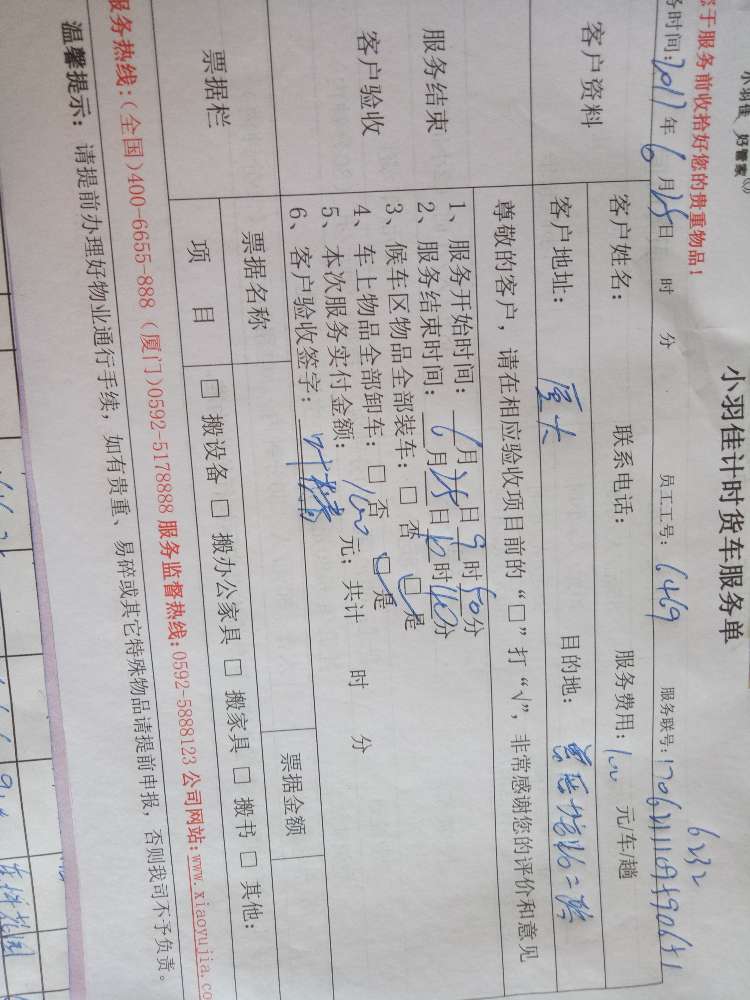 小羽佳 好管家
小羽佳计时货车服务单
您于服务前收拾好您的贵重物品！
务时间:2017年6月28日 时 分 员工工号: 6469 服务联号:
6232
客户资料
客户姓名: 联系电话: 服务费用: 100 元/车/趟
客户地址: 厦大 目的地:
服务结束
客户验收
尊敬的客户，请在相应验收项目前的“□”打“√”，非常感谢您的评价和意见
1、服务开始时间: 6月28日9时50分
2、服务结束时间: 6月28日10时10分
3、候车区物品全部装车: □ 否 □ 是
4、车上物品全部卸车: □ 否 □ 是
5、本次服务实付金额: 100 元; 共计 时 分
6、客户验收签字:
票据栏
票据名称 票据金额
项 目 □ 搬设备 □ 搬办公家具 □ 搬家具 □ 搬书 □ 其他:
服务热线:(全国)400-6655-888 (厦门)0592-5178888 服务监督热线:0592-5888123 公司网站:www.xiaoyujia.co
温馨提示: 请提前办理好物业通行手续，如有贵重、易碎或其它特殊物品请提前申报，否则我司不予负责。